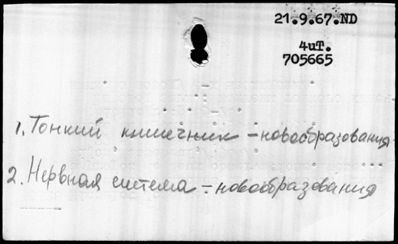 21.9.67.ND
4иТ.
705665
1. Тонкий кишечник – новообразования
2. Нервная система – новообразования